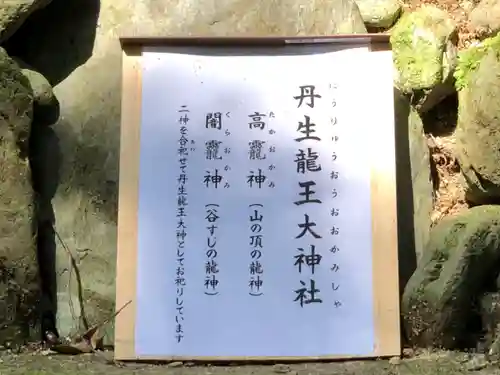 丹生龍王大神社
にうりゅうおうおおかみしゃ
高龗神（山の頂の龍神）
たかおかみ
闇龗神（谷すじの龍神）
くらおかみ
二神を合祀せて丹生龍王大神としてお祀りしています
あわ